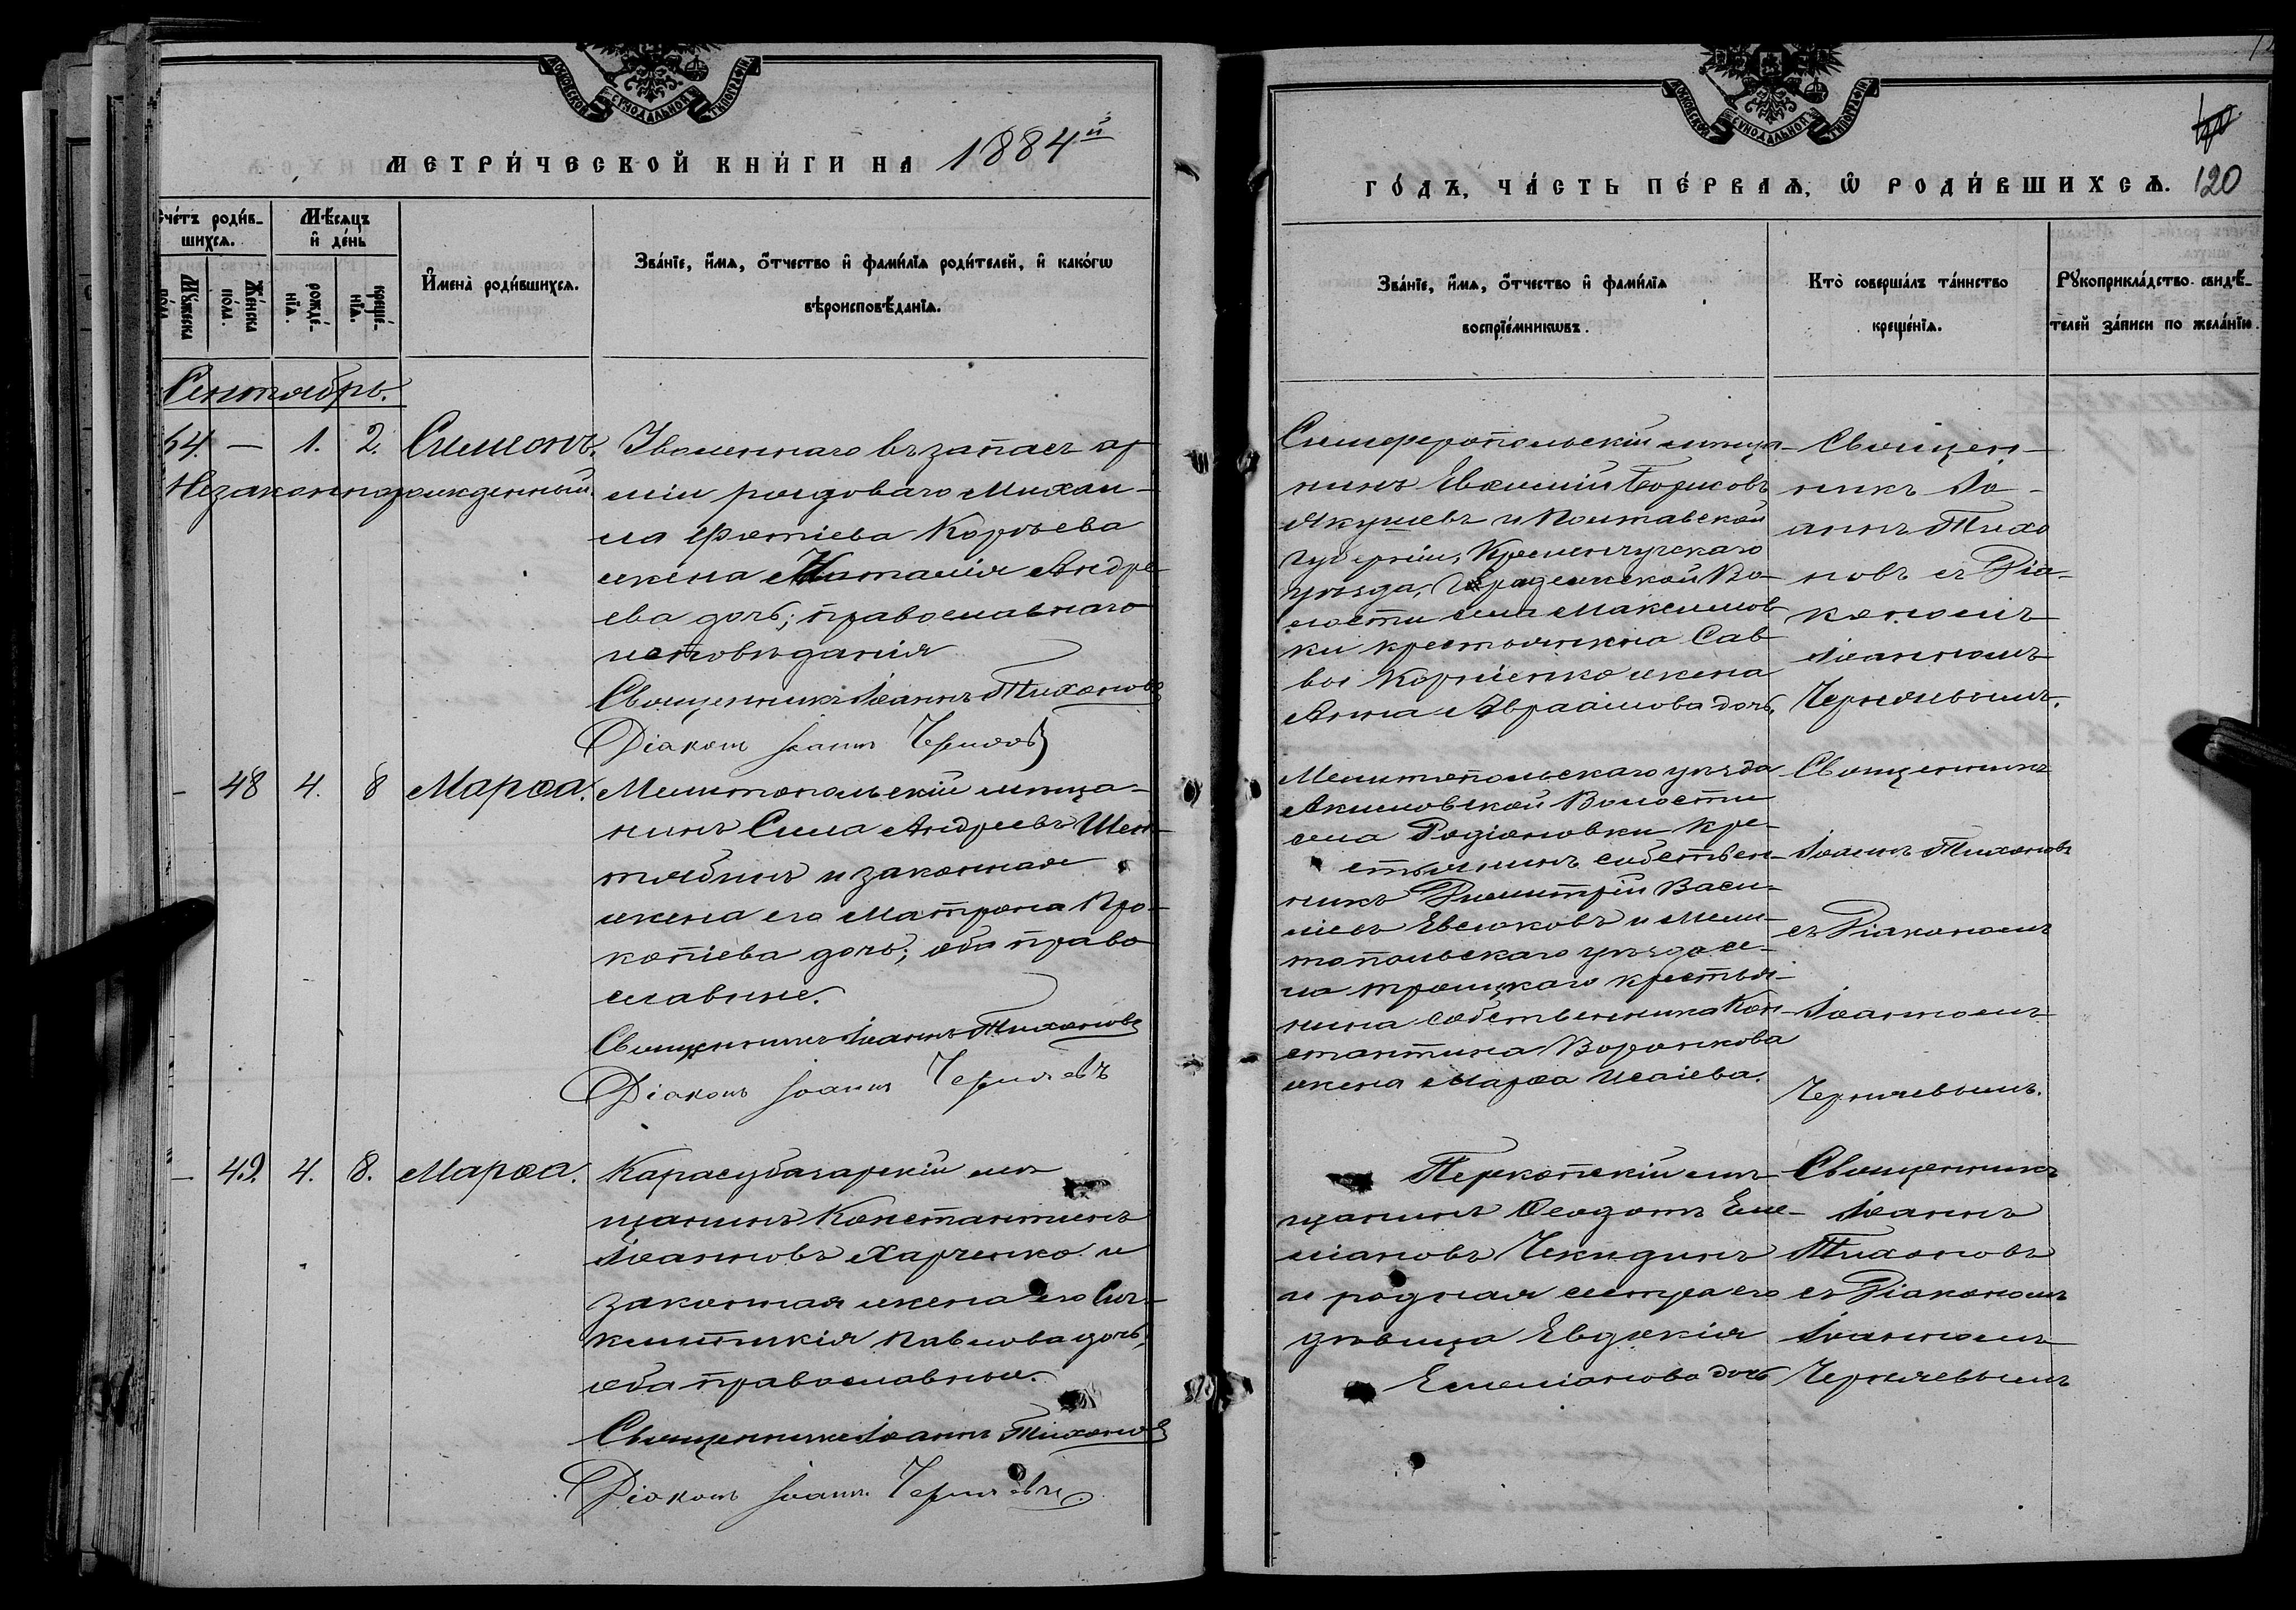 МОСКОВСКОЙ СѴНОДАЛЬНОЙ ТИПОГРАФІИ
МЕТРИ́ЧЕСКОЙ КНИ́ГИ НА 1884й
Сче́тъ роди́в-
шихся.
Мѣ́сяцъ
и҆ де́нь
Му́жеска
по́ла.
Же́нска
по́ла.
рожде́-
нїѧ.
креще́-
нїѧ.
И҆мена̀ роди́вшихсѧ.
Зва́нїе, и҆́мѧ, ѻ҆́тчество и҆ фами́лїѧ роди́телей, и҆ како́гѡ
вѣроисповѣ́данїѧ.
Сентябрь.
54. — 1. 2. Симеонъ.
Незаконнорожденный.
Уволеннаго въ запасъ ар-
міи рядоваго Михаи-
ла Фотіева Корьева
жена Наталія Андре-
ева дочь; православнаго
исповѣданія
Священникъ Іоаннъ Тихоновъ
Діаконъ Іоаннъ Чернявъ
— 48 4. 8 Марѳа.
Мелитопольскій мѣща-
нинъ Сила Андреевъ Шен-
тябинъ и законная
жена его Матрона Про-
копіева дочь; оба право
славные.
Священникъ Іоаннъ Тихоновъ
Діаконъ Іоаннъ Чернявъ
— 49. 4. 8. Марѳа.
Карасубазарскій мѣ
щанинъ Константинъ
Іоанновъ Харченко и
законная жена его Син-
клитикія Павлова дочь,
оба православные.
Священникъ Іоаннъ Тихоновъ
Діаконъ Іоаннъ Чернявъ
МОСКОВСКОЙ СѴНОДАЛЬНОЙ ТИПОГРАФІИ
ГО́ДЪ, ЧА́СТЬ ПЕ́РВАѦ, Ѡ҆ РОДИ́ВШИХСѦ. 120
Зва́нїе, и҆́мѧ, ѻ҆́тчество и҆ фами́лїѧ
воспрїе́мникѡвъ.
Кто̀ соверша́лъ та́инство
креще́нїѧ.
Рꙋкоприкла́дство свидѣ́-
телей за́писи по жела́нїю.
Симферопольскій мѣща-
нинъ Евѳимій Борисовъ
Якушевъ и Полтавской
губерніи, Кременчугскаго
уѣзда, Градижской Во-
лости села Максимов
ки крестьянина Сав-
вы Корніенко жена
Анна Авраамова дочь.
Священ-
никъ Іо-
аннъ Тихо
новъ съ Діа-
кономъ
Іоанномъ
Чернявымъ.
Мелитопольскаго уѣзда
Акимовской Волости
села Родіоновки кре-
стьянинъ собствен-
никъ Димитрій Васи-
ліевъ Евсюковъ и Мели-
топольскаго уѣзда се-
ла Троицкаго крестья-
нина собственника Кон-
стантина Воронкова
жена Марѳа Исаіева.
Священникъ
Іоаннъ Тихоновъ
съ Діакономъ
Іоанномъ
Чернявымъ.
Перекопскій мѣ-
щанинъ Ѳеодотъ Еме-
ліановъ Чекидинъ
и родная сестра его
дѣвица Евдокія
Емеліанова дочь
Священникъ
Іоаннъ
Тихоновъ
съ Діакономъ
Іоанномъ
Чернявымъ